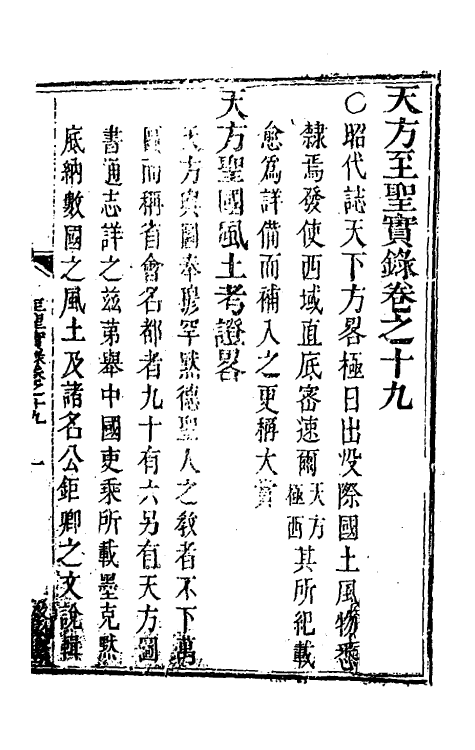 天方至聖實錄卷之十九
○昭代誌天下方畧極日出没際國土風物悉
隸焉發使西域直底密速爾天方極西其所紀載
愈為詳備而補入之更稱大賞
天方聖國風土考證畧
天方輿圖奉穆罕默德聖人之敎者不下萬
國而稱省會名都者九十有六另有天方圖
書通志詳之茲苐舉中國吏乘所載墨克黙
底納數國之風土及諸名公鉅卿之文說輯
至聖實錄卷之十九 一